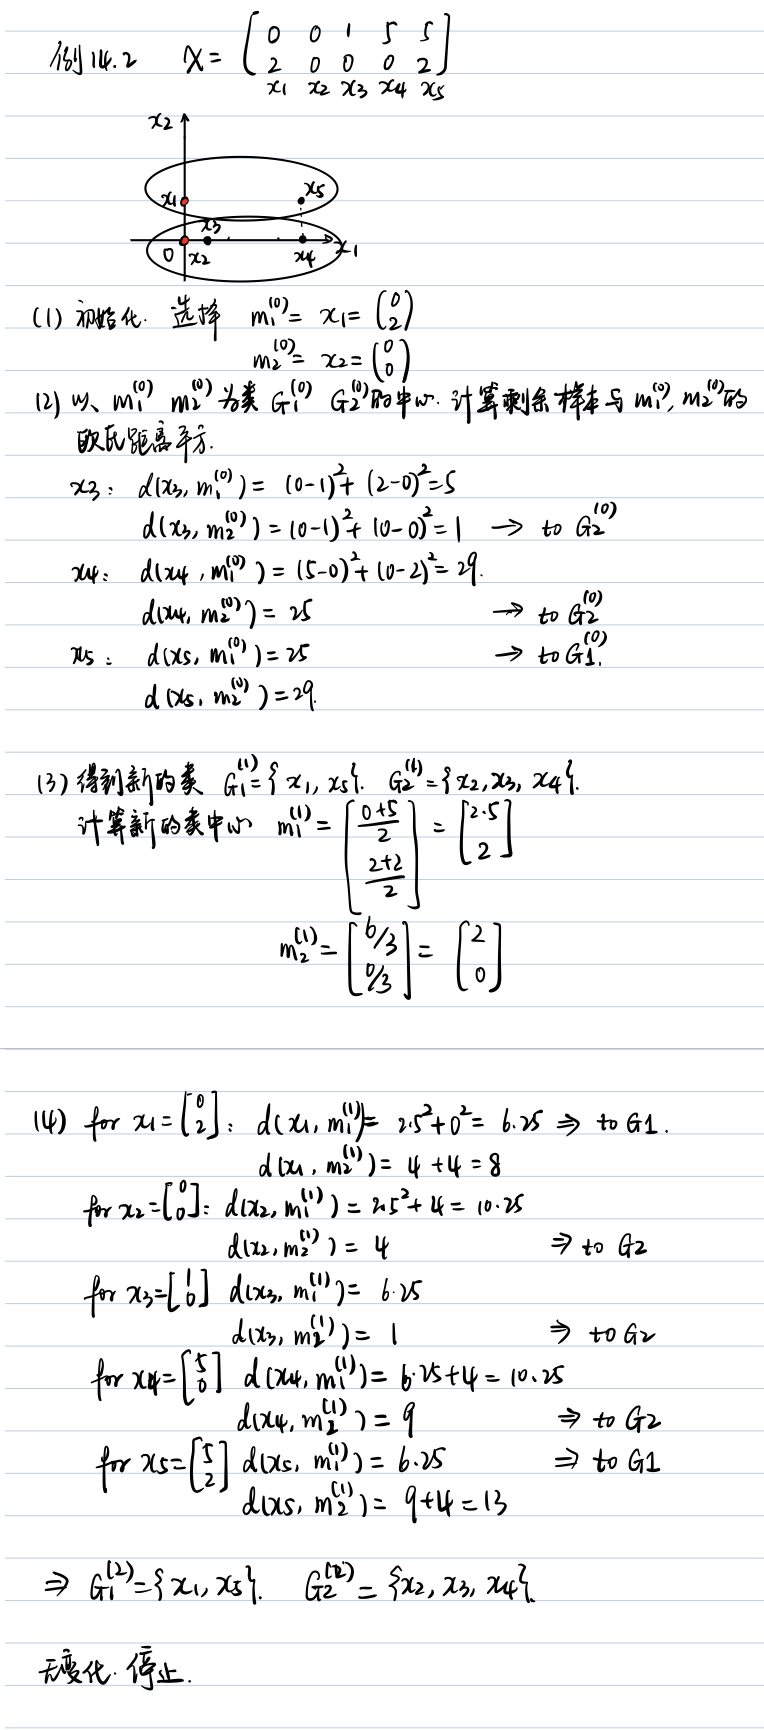 例14.2 X = [0 0 1 5 5
2 0 0 0 2]
x1 x2 x3 x4 x5
x2
x1 x5
x3
0 x2 x4 x1
(1) 初始化. 选择 m1^(0) = x1 = (0 2)
m2^(0) = x2 = (0 0)
(2) 以、m1^(0) m2^(0) 为类 G1^(0) G2^(0) 的中心. 计算剩余样本与 m1^(0), m2^(0) 的
欧氏距离平方.
x3: d(x3, m1^(0)) = (0-1)^2 + (2-0)^2 = 5
d(x3, m2^(0)) = (0-1)^2 + (0-0)^2 = 1 → to G2^(0)
x4: d(x4, m1^(0)) = (5-0)^2 + (0-2)^2 = 29.
d(x4, m2^(0)) = 25 → to G2^(0)
x5: d(x5, m1^(0)) = 25 → to G1^(0).
d(x5, m2^(0)) = 29.
(3) 得到新的类 G1^(1) = {x1, x5}. G2^(1) = {x2, x3, x4}.
计算新的类中心 m1^(1) = [0+5/2 2+2/2] = [2.5 2]
m2^(1) = [6/3 0/3] = [2 0]
(4) for x1 = [0 2]: d(x1, m1^(1)) = 2.5^2 + 0^2 = 6.25 ⇒ to G1.
d(x1, m2^(1)) = 4 + 4 = 8
for x2 = [0 0]: d(x2, m1^(1)) = 2.5^2 + 4 = 10.25
d(x2, m2^(1)) = 4 ⇒ to G2
for x3 = [1 0] d(x3, m1^(1)) = 6.25
d(x3, m2^(1)) = 1 ⇒ to G2
for x4 = [5 0] d(x4, m1^(1)) = 6.25 + 4 = 10.25
d(x4, m2^(1)) = 9 ⇒ to G2
for x5 = [5 2] d(x5, m1^(1)) = 6.25 ⇒ to G1
d(x5, m2^(1)) = 9 + 4 = 13
⇒ G1^(2) = {x1, x5}. G2^(2) = {x2, x3, x4}.
无变化. 停止.